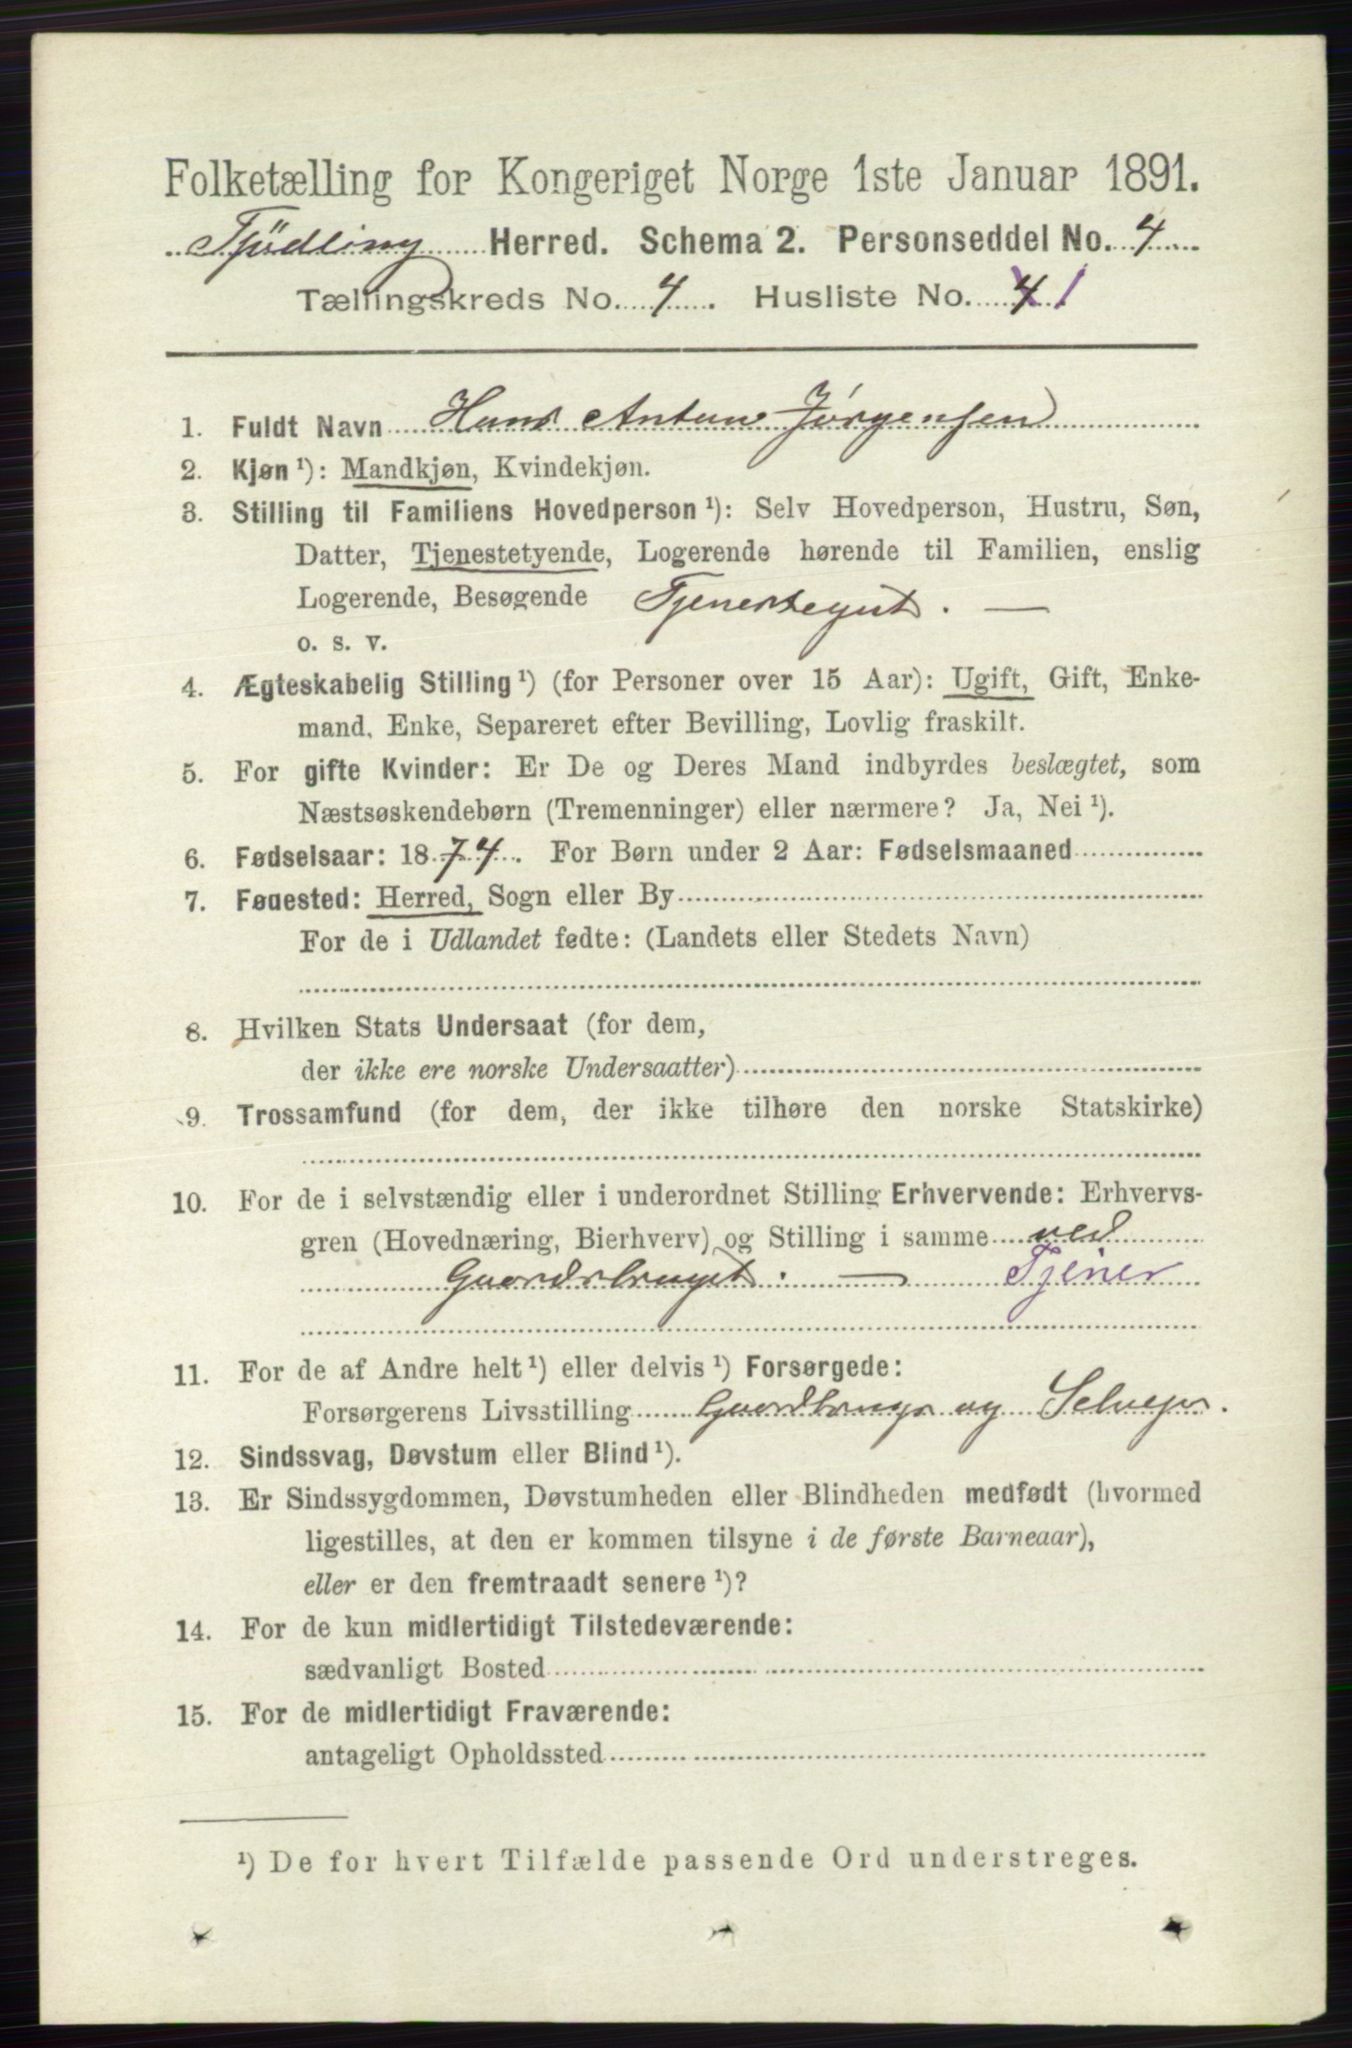 Folketælling for Kongeriget Norge 1ste Januar 1891.
Tjödling Herred. Schema 2. Personseddel No. 4
Tællingskreds No. 4. Husliste No. 4 1
1. Fuldt Navn Hans Anton Jørgensen
2. Kjøn ¹): Mandkjøn, Kvindekjøn.
3. Stilling til Familiens Hovedperson ¹): Selv Hovedperson, Hustru, Søn,
Datter, Tjenestetyende, Logerende hørende til Familien, enslig
Logerende, Besøgende Tjenestegut. —
o. s. v.
4. Ægteskabelig Stilling ¹) (for Personer over 15 Aar): Ugift, Gift, Enke-
mand, Enke, Separeret efter Bevilling, Lovlig fraskilt.
5. For gifte Kvinder: Er De og Deres Mand indbyrdes beslægtet, som
Næstsøskendebørn (Tremenninger) eller nærmere? Ja, Nei ¹).
6. Fødselsaar: 1874. For Børn under 2 Aar: Fødselsmaaned
7. Føuested: Herred, Sogn eller By
For de i Udlandet fødte: (Landets eller Stedets Navn)
8. Hvilken Stats Undersaat (for dem,
der ikke ere norske Undersaatter)
9. Trossamfund (for dem, der ikke tilhøre den norske Statskirke)
10. For de i selvstændig eller i underordnet Stilling Erhvervende: Erhvervs-
gren (Hovednæring, Bierhverv) og Stilling i samme ved
Gaardsbruget. — Tjener
11. For de af Andre helt ¹) eller delvis ¹) Forsørgede:
Forsørgerens Livsstilling Gaardbruger og Selveier.
12. Sindssvag, Døvstum eller Blind ¹).
13. Er Sindssygdommen, Døvstumheden eller Blindheden medfødt (hvormed
ligestilles, at den er kommen tilsyne i de første Barneaar),
eller er den fremtraadt senere ¹)?
14. For de kun midlertidigt Tilstedeværende:
sædvanligt Bosted
15. For de midlertidigt Fraværende:
antageligt Opholdssted
¹) De for hvert Tilfælde passende Ord understreges.